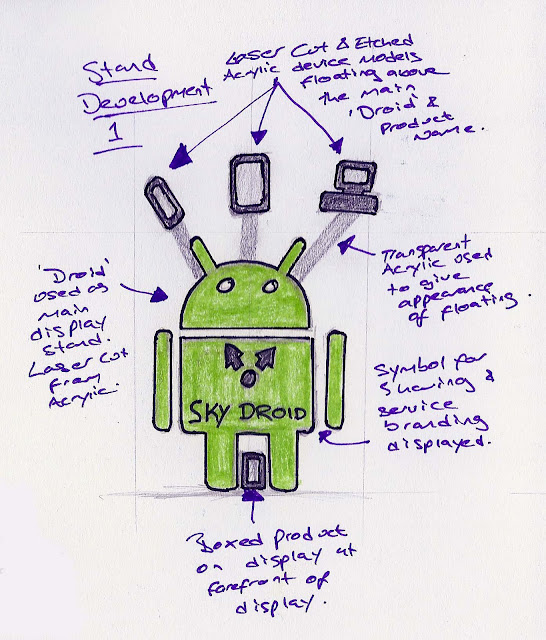 Stand
Development
1
Laser Cut & Etched
Acrylic device models
floating above
the main
'Droid' &
Product
Name.
'Droid'
used as
main
display
stand.
Laser cut
from
Acrylic.
Transparent
Acrylic used
to give
appearance
of floating.
Symbol for
Sharing &
service
branding
displayed.
SKY DROID
Boxed product
on display at
forefront of
display.